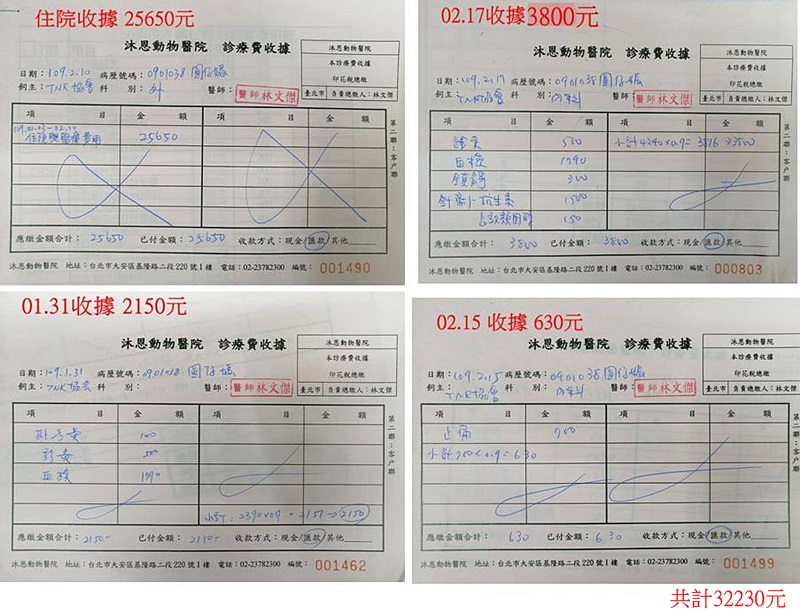 住院收據 25650元
沐恩動物醫院 診療費收據
沐恩動物醫院
本診療費收據
印花稅總繳
臺北市 負責總繳人：林文傑
日期：109.2.10 病歷號碼：0901038 圓仔媽
飼主：TNR協會 科 別：外 醫師：醫師林文傑
項 目 金 額 項 目 金 額
住院與醫療費用 25650
第二聯：客戶聯
應繳金額合計：25650 已付金額：25650 收款方式：現金/匯款/其他
沐恩動物醫院 地址：台北市大安區基隆路二段220號1樓 電話：02-23782300 編號：001490
02.17收據3800元
沐恩動物醫院 診療費收據
沐恩動物醫院
本診療費收據
印花稅總繳
臺北市 負責總繳人：林文傑
日期：109.2.17 病歷號碼：0901038圓仔媽
飼主：TNR協會 科 別：內科 醫師：醫師林文傑
項 目 金 額 項 目 金 額
診察 500 小計4240x0.9=3816→3800
血檢 1790
鎮靜 300
針劑-抗生素 1500
150
第二聯：客戶聯
應繳金額合計：3800 已付金額：3800 收款方式：現金/匯款/其他
沐恩動物醫院 地址：台北市大安區基隆路二段220號1樓 電話：02-23782300 編號：000803
01.31收據 2150元
沐恩動物醫院 診療費收據
沐恩動物醫院
本診療費收據
印花稅總繳
臺北市 負責總繳人：林文傑
日期：109.1.31 病歷號碼：0901038 圓仔媽
飼主：TNR協會 科 別： 醫師：醫師林文傑
項 目 金 額 項 目 金 額
掛號費 100
診察 500
血檢 1790
小計：2390x0.9=2151→2150
第二聯：客戶聯
應繳金額合計：2150- 已付金額：2150- 收款方式：現金/匯款/其他
沐恩動物醫院 地址：台北市大安區基隆路二段220號1樓 電話：02-23782300 編號：001462
02.15 收據 630元
沐恩動物醫院 診療費收據
沐恩動物醫院
本診療費收據
印花稅總繳
臺北市 負責總繳人：林文傑
日期：109.2.15 病歷號碼：0901038圓仔媽
飼主：TNR協會 科 別：內科 醫師：醫師林文傑
項 目 金 額 項 目 金 額
止痛 700
小計700x0.9=630
第二聯：客戶聯
應繳金額合計：630 已付金額：630 收款方式：現金/匯款/其他
沐恩動物醫院 地址：台北市大安區基隆路二段220號1樓 電話：02-23782300 編號：001499
共計32230元